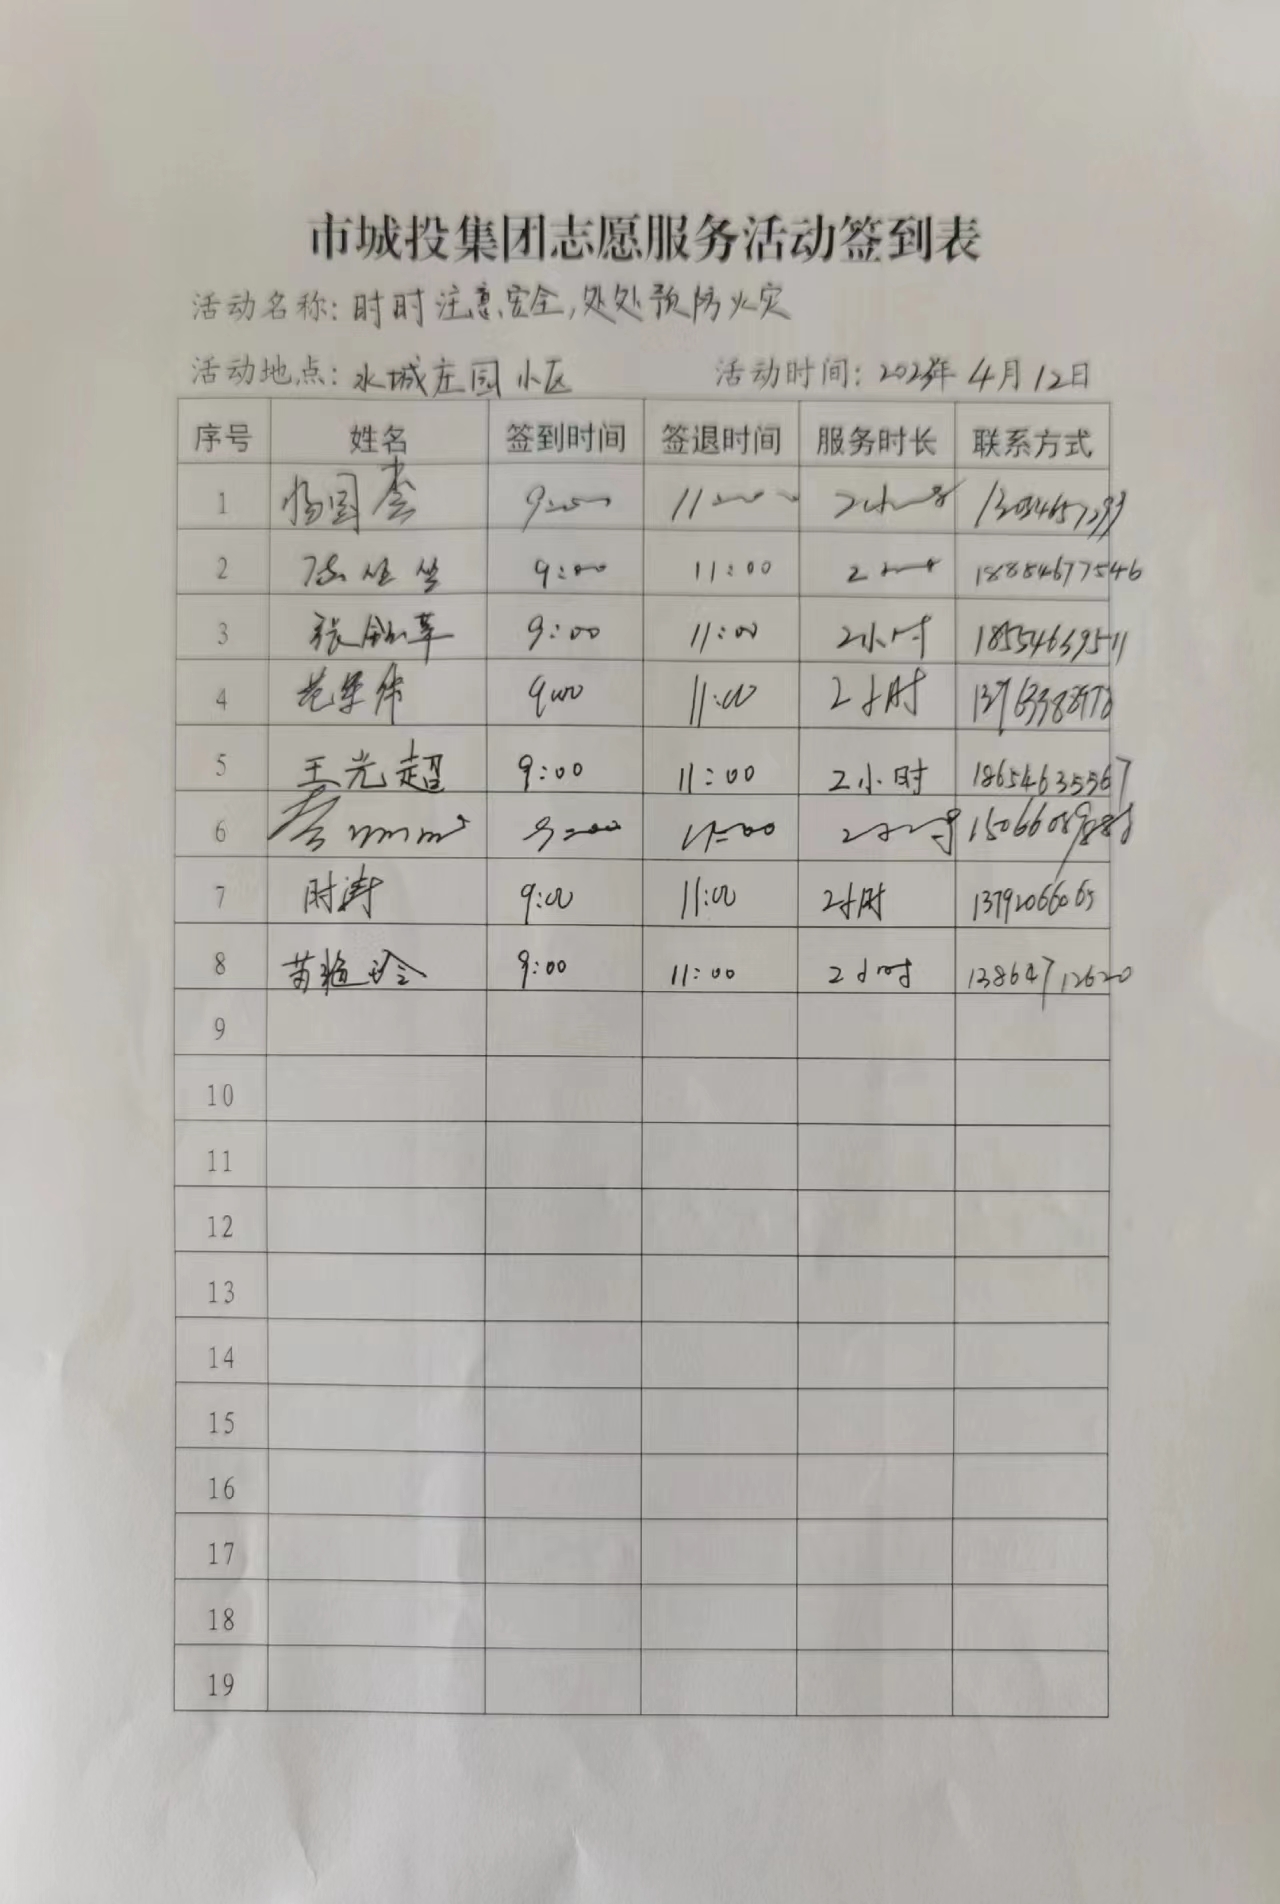 市城投集团志愿服务活动签到表
活动名称：时时注意安全，处处预防火灾
活动地点：水城庄园小区 活动时间：2023年4月12日
序号 姓名 签到时间 签退时间 服务时长 联系方式
1 杨国 9:00 11:00 2小时
2 9:00 11:00 2小时 18854677546
3 张 9:00 11:00 2小时 18554639511
4 范 9:00 11:00 2小时
5 王光超 9:00 11:00 2小时 18654635567
6 9:00 11:00 2小时 15066089888
7 时涛 9:00 11:00 2小时 13792066065
8 苗 9:00 11:00 2小时 13864712620
9
10
11
12
13
14
15
16
17
18
19